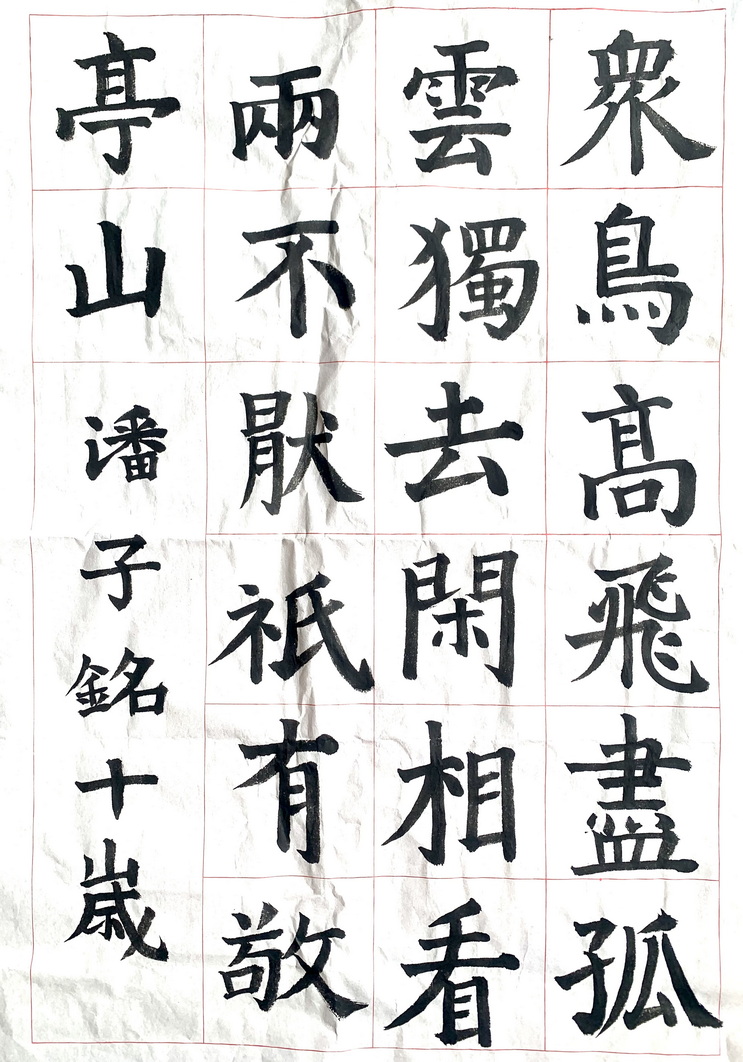 衆鳥髙飛盡孤
雲獨去閑相看
兩不猒祇有敬
亭山
潘子銘十歳